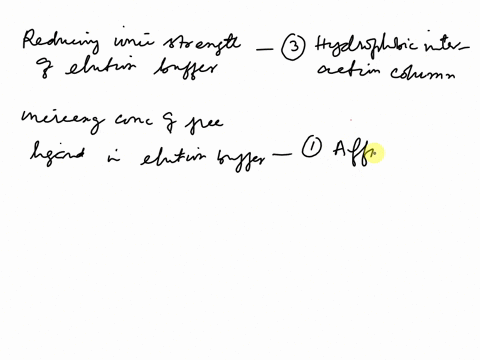 Reducing ionic strength — ③ Hydrophobic inter-
of elution buffer action column
increasing conc of free
ligand in elution buffer — ① Aff